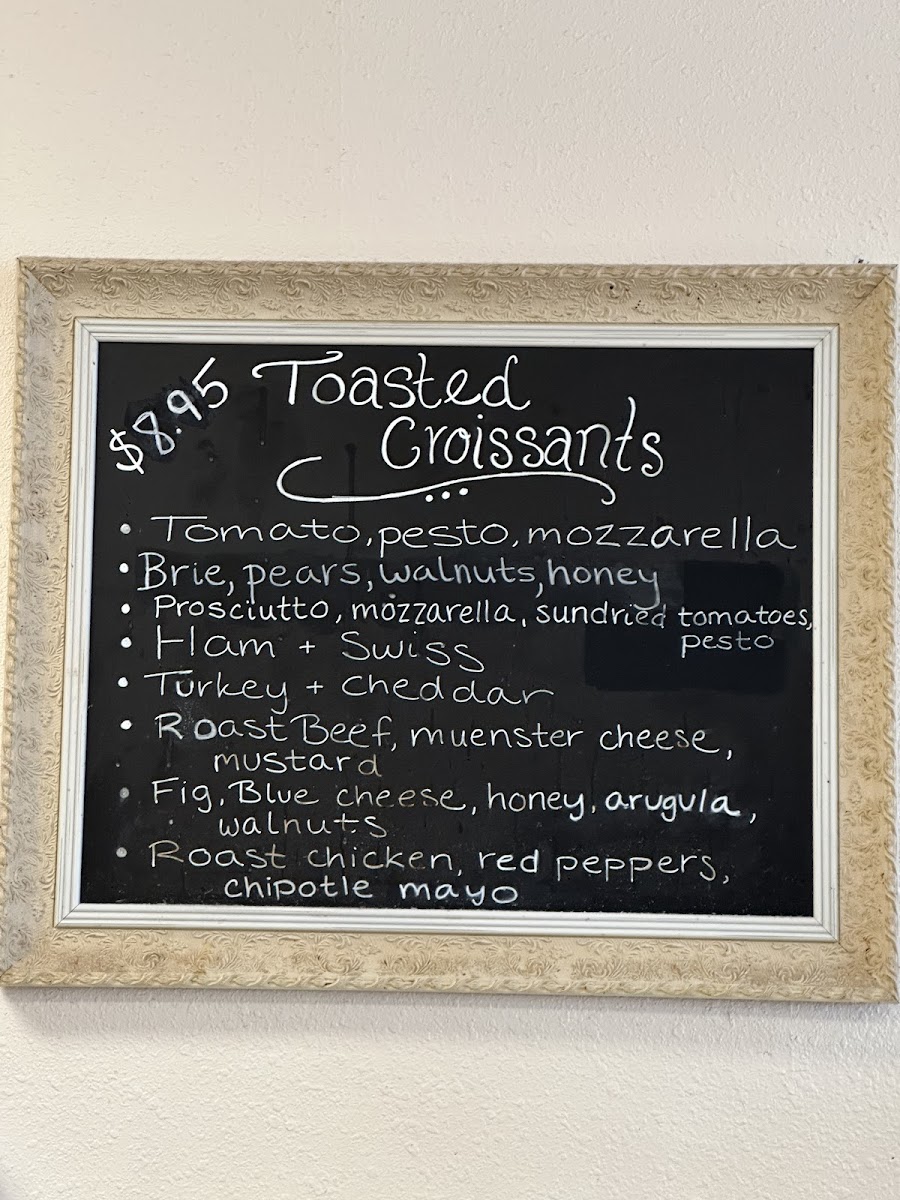 $8.95 Toasted
Croissants
• Tomato, pesto, mozzarella
• Brie, pears, walnuts, honey
• Prosciutto, mozzarella, sundried tomatoes,
pesto
• Ham + Swiss
• Turkey + cheddar
• Roast Beef, muenster cheese,
mustard
• Fig, Blue cheese, honey, arugula,
walnuts
• Roast chicken, red peppers,
chipotle mayo